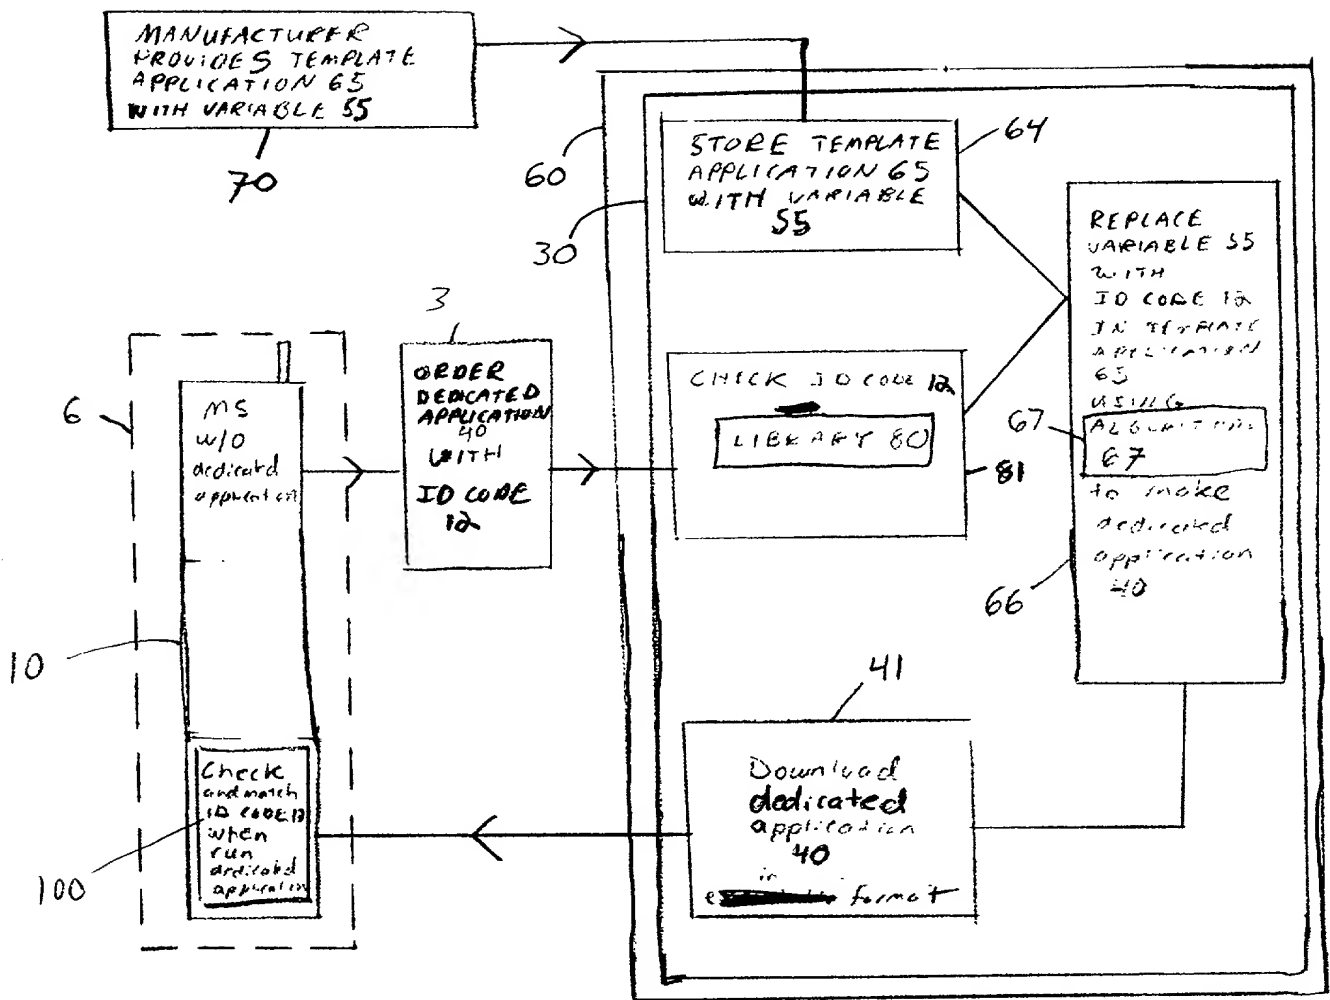 MANUFACTURER
PROVIDES TEMPLATE
APPLICATION 65
WITH VARIABLE 55
70
60
30
STORE TEMPLATE
APPLICATION 65
WITH VARIABLE
55
64
REPLACE
VARIABLE 55
WITH
ID CODE 12
IN TEMPLATE
APPLICATION
65
USING
ALGORITHM
67
to make
dedicated
application
40
67
66
CHECK ID CODE 12
LIBRARY 80
81
3
ORDER
DEDICATED
APPLICATION
40
WITH
ID CODE
12
6
MS
W/O
dedicated
application
10
Check
and match
ID CODE 12
when
run
dedicated
application
100
41
Download
dedicated
application
40
in
format